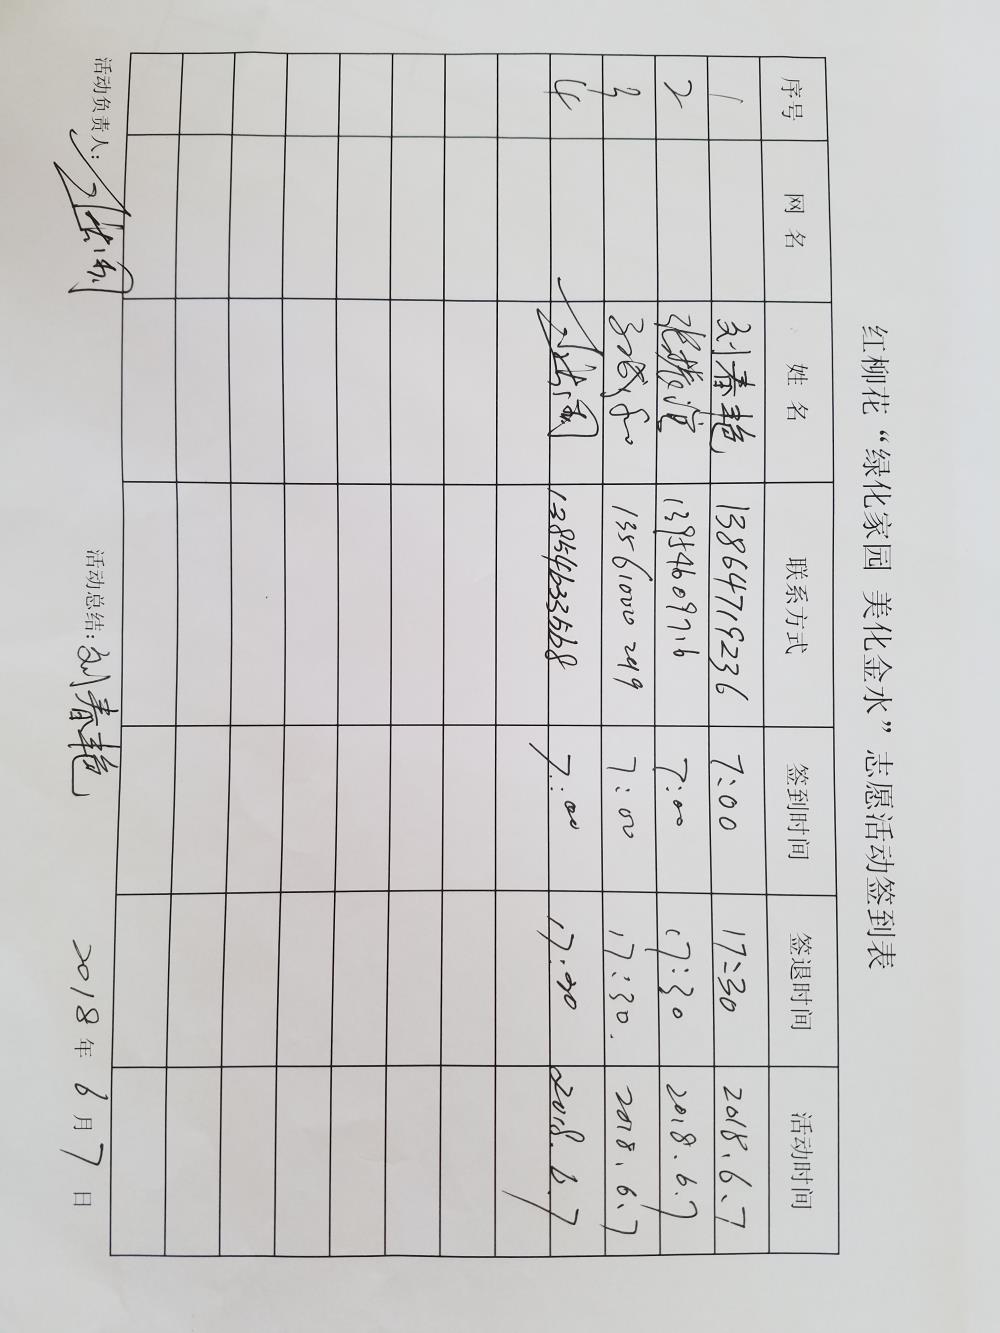 红柳花“绿化家园 美化金水”志愿活动签到表
序号 网名 姓名 联系方式 签到时间 签退时间 活动时间
1 刘春艳 13864719236 7:00 17:30 2018.6.7
2 张振滨 13954609716 7:00 17:30 2018.6.7
3 13561000249 7:00 17:30. 2018.6.7
4 13854633568 7:00 17:00 2018.6.7
活动负责人: 活动总结:刘春艳 2018年6月7日